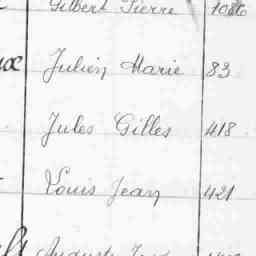 Gilbert Pierre 1086
Julien Marie 83
Jules Gilles 418
Louis Jean 421